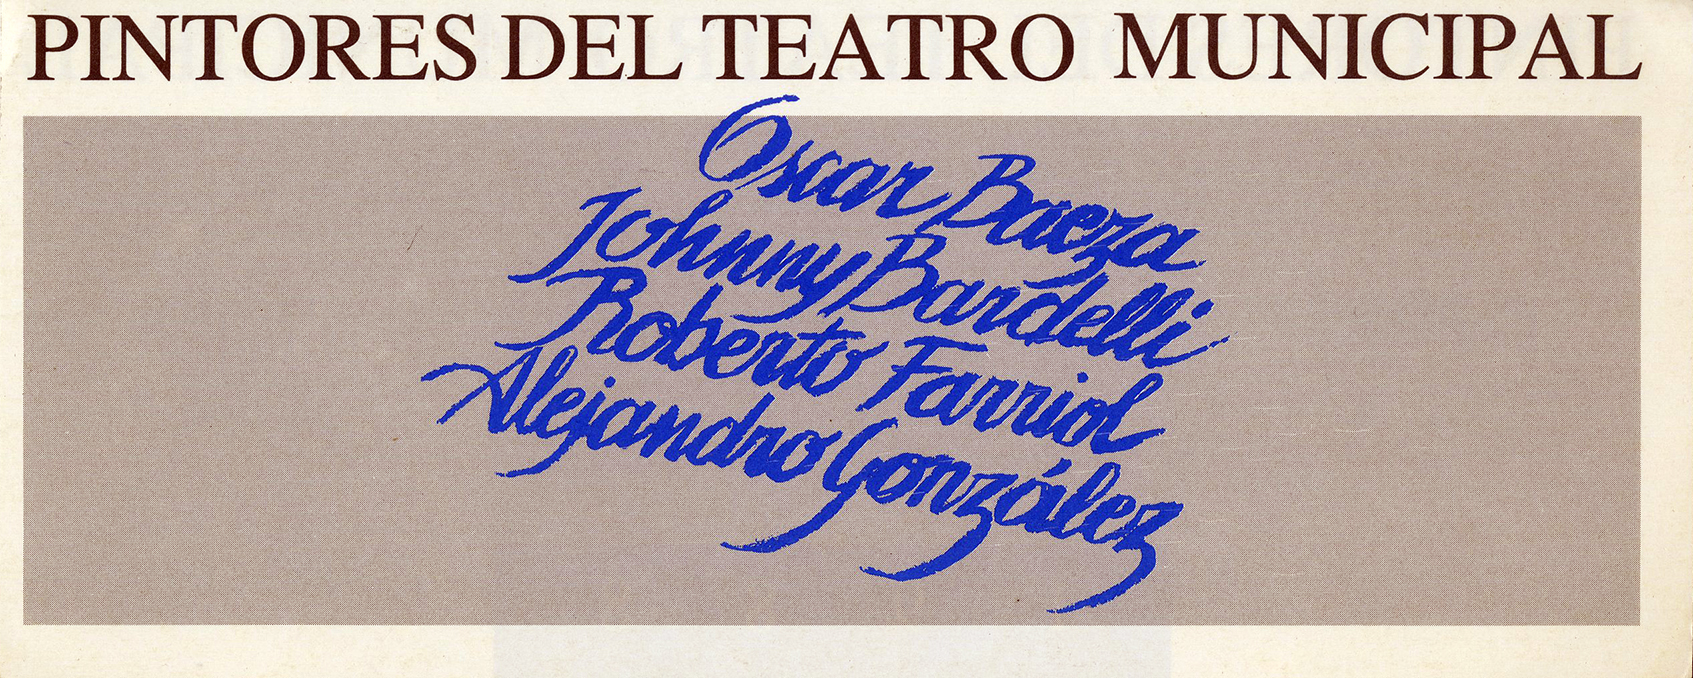 PINTORES DEL TEATRO MUNICIPAL
Oscar Baeza
Johnny Bardelli
Roberto Farriol
Alejandro González